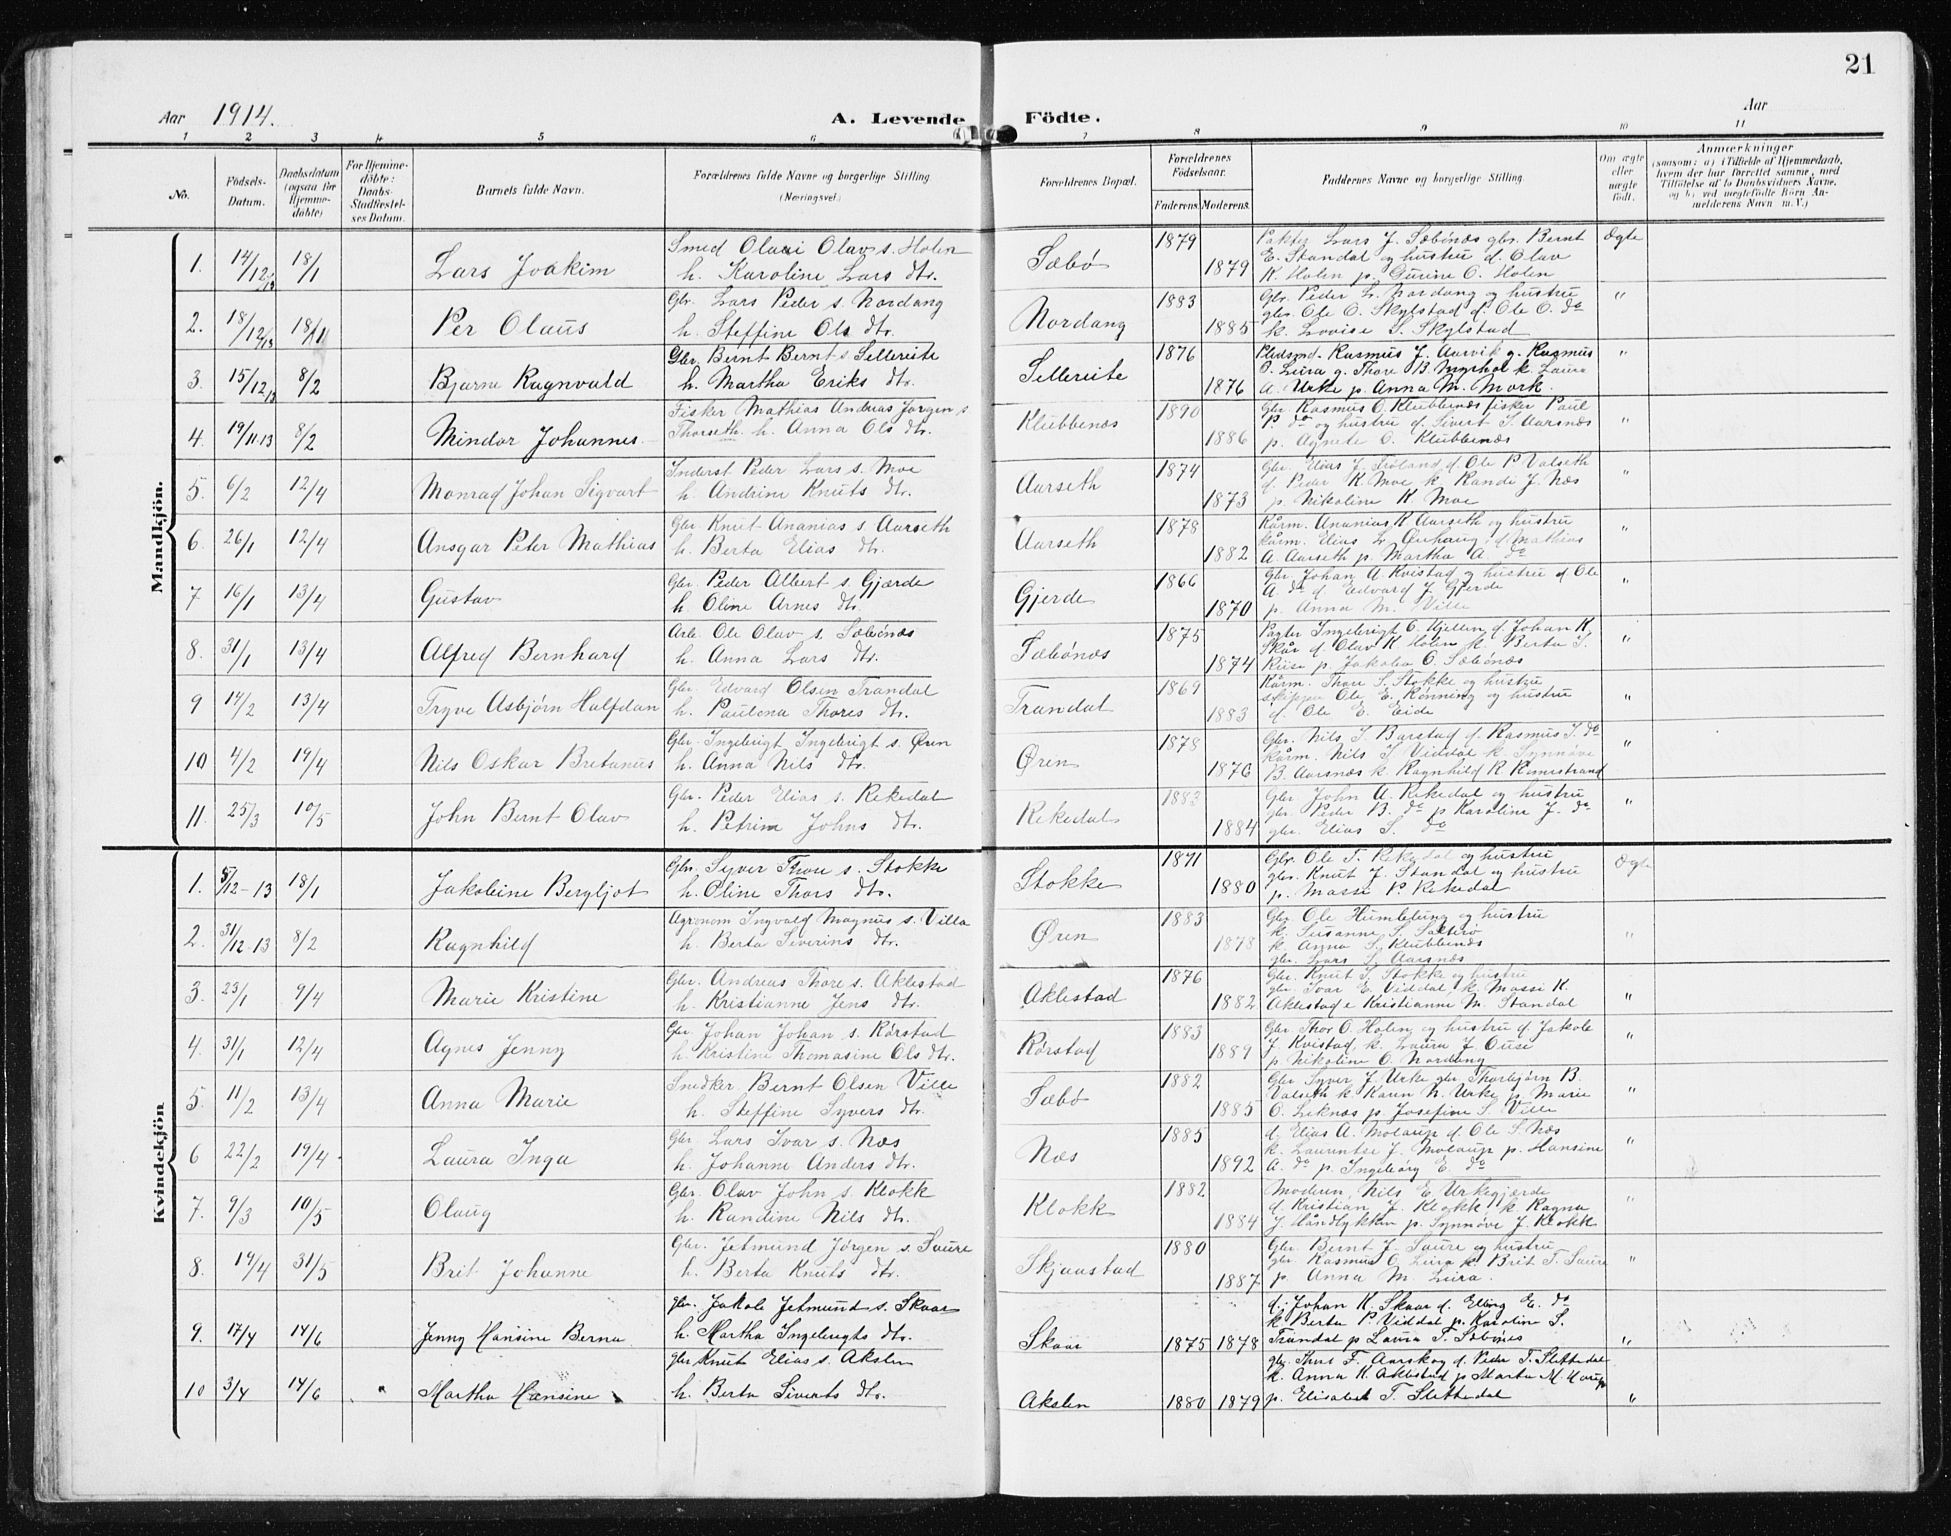 21
Aar 1914.
A. Levende Födte.
Aar
1 2 3 4 5 6 7 8 9 10 11
No.
Födsels-Datum.
Daabsdatum (ogsaa for Hjemme-döbte)
For Hjemme-döbte: Daabs-Stadfæstel-ses Datum.
Barnets fulde Navn.
Forældrenes fulde Navne og borgerlige Stilling. (Næringsvei.)
Forældrenes Bopæl.
Forældrenes Födselsaar.
Faderens. Moderens.
Faddernes Navne og borgerlige Stilling.
Om ægte eller uægte födt.
Anmærkninger
(saasom: a) i Tilfælde af Hjemmedaab, hvem der har forrettet samme, med Tilföielse af to Daabsvidners Navne, og b) ved uægtefödte Börn An-melderens Navn m. V.)
Mandkjön.
1. 14/12 13 18/1 Lars Joakim
Smed Olavi Olav s. Holen
h. Karoline Lars dtr.
Sæbø 1879 1879
Pakter Lars J. Sæbönæs gbr. Bernt
E. Standal og hustru d. Olav
K. Holen p. Gurine O. Holen
Ægte
2. 18/12 13 18/1 Per Olaus
Gbr. Lars Peder s. Nordang
h. Steffine Ols dtr.
Nordang 1883 1885
Gbr. Peder L. Nordang og hustru
gbr. Ole O. Skylstad d. Ole O. do
k. Lovise S. Skylstad
"
3. 15/12 13 8/2 Bjarne Ragnvald
Gbr. Bernt Bernt s. Sellereite
h. Martha Eriks dtr.
Sellereite 1876 1876
Pladsmd. Rasmus J. Aarvik g. Rasmus
O. Leira g. Thore B. Myrhol k. Laura
A. Urke p. Anna M. Mork.
"
4. 19/11 13 8/2 Mindor Johannes
Fisker Mathias Andreas Jørgen s
Thorseth. h. Anna Ols dtr.
Klubbenæs 1890 1886
Gbr. Rasmus O. Klubbenæs fisker Paul
P. do og hustru d. Sivert S. Aarsnæs
p. Agnete O. Klubbenæs
"
5. 6/2 12/4 Monrad Johan Sigvart
Inderst Peder Lars s. Moe
h. Andrine Knuts dtr.
Aarseth 1874 1873
Gbr. Elias J. Irøland d. Ole P. Valseth
d. Peder K. Moe k. Rande J. Næs
p. Nikoline K. Moe
"
6. 26/1 12/4 Ansgar Peter Mathias
Gbr. Knut Ananias s. Aarseth
h. Berta Elias dtr.
Aarseth 1878 1882
Kårm. Ananias K Aarseth og hustru
kårm. Elias L. Øuhaug, d. Mathias
A. Aarseth p. Martha A. do
"
7 16/1 13/4 Gustav
Gbr. Peder Albert s. Gjærde
h. Oline Arnes dtr.
Gjerde 1866 1870
Gbr. Johan A. Kvistad og hustru d. Ole
A. do d. Edvard J. Gjerde
p. Anna M. Ville
"
8. 31/1 13/4 Alfred Bernhard
Arb. Ole Olav s. Sæbönæs
h. Anna Lars dtr.
Sæbönæs 1875 1874
Pagter Ingebrigt O. Hjellen d. Johan K.
Skår d. Olav K Holen k. Berta S.
Riise p. Jakoba O. Sæbönæs
"
9 14/2 13/4 Tryve Asbjørn Halfdan
Gbr. Edvard Olsen Trandal
h. Paulena Thores dtr.
Trandal 1869 1883
Kårm. Thore S. Stokke og hustru
skipper Ole E. Rönning og hustru
d. Ole E. Eide
"
10 4/2 19/4 Nils Oskar Bretanus
Gbr. Ingebrigt Ingebrigt s. Øren
h. Anna Nils dtr.
Øren 1878 1876
Gbr. Nils S. Barstad d. Rasmus S. do
kårm. Nils J Viddal k. Synnöve
B. Aarsnæs k. Ragnhild R. Romestrand
"
11. 25/3 10/5 John Bernt Olav
Gbr. Peder Elias s. Rekedal
h. Petrine Johns dtr.
Rekedal 1883 1884
Gbr. John A. Rekedal og hustru
gbr. Peder B. do p. Karoline J. do
gbr. Elias S. do
"
Kvindekjön
1. 5/12-13 18/1 Jakobine Bergljot
Gbr. Syver Thore s. Stokke
h. Oline Thors dtr.
Stokke 1871 1880
Gbr. Ole T. Rekedal og hustru
gbr. Knut J. Standal og hustru
p. Massi P. Rekedal
Ægte
2. 31/12-13 8/2 Ragnhild
Agronom Ingvald Magnus s. Villa
h. Berta Severins dtr.
Øren 1883 1878
Gbr. Ole Humblung og hustru
k. Susanne S. Sætrø
k. Anna S. Klubbenæs
gbr. Lars S. Aarsnæs
"
3. 23/1 9/4 Marie Kristine
Gbr. Andreas Thore s. Aklestad
h. Kristianne Jens dtr.
Aklestad 1876 1882
Gbr. Knut S. Stokke og hustru
gbr. Ivar E. Viddal k. Massi K.
Aklestad k Kristianne M. Standal
"
4. 31/1 12/4 Agnes Jenny
Gbr. Johan Johan s. Rørstad
h. Kristine Thomasine Ols dtr.
Rørstad 1883 1889
Gbr. Thor O. Holen og hustru d. Jakob
J. Kvistad k. Laura J. Ouse
p. Nikoline O. Nordang
"
5. 11/2 13/4 Anna Marie
Snedker Bernt Olsen Ville
h. Steffine Syvers dtr.
Sæbø 1882 1885
Gbr. Syver J. Urke gbr. Thorbjørn B.
Valseth k. Karen N. Urke p. Marie
O. Leknæs p. Josefine S. Ville
"
6 22/2 19/4. Laura Inga
Gbr. Lars Ivar s. Næs
h. Johanne Anders dtr.
Næs 1885 1892
d. Elias A. Molaup d. Ole S. Næs
k. Laurntse J. Molaup p. Hansine
A. do p. Ingeborg E. do
"
7. 9/3 10/5 Olaug
Gbr. Olav John s. Klokk
h. Randine Nils dtr.
Klokk 1882 1884
Moderen, Nils E. Urkegjærde
d. Kristian J. Klokk k. Ragna
J. Håndlykken p. Synnöve J. Klokk
"
8. 14/4 31/5 Brit Johanne
Gbr. Jetmund Jørgen s. Saure
h. Berta Knuts dtr.
Skjaastad 1880 1887
Gbr. Bernt J. Saure og hustru
gbr. Rasmus O. Leira k. Brit T. Saure
p. Anna M. Leira.
"
9. 17/4 14/6 Jenny Hansine Berna
gbr. Jakob Jetmund s. Skaar
h. Martha Ingebrigts dtr.
Skaar 1875 1878
d. Johan K. Skaar d. Elling E. do
k. Berta P. Viddal p. Karoline S.
Trandal p Laura T. Sæbönes
"
10 3/4 14/6 Martha Hansine
gbr Knut Elias s. Akslen
h. Berta Siverts dtr.
Akslen 1880 1879
gbr. Thore F. Aarskog d. Peder T. Slettedal
k. Anna K. Aklestad p Marta M. Morup
p. Elisabet T. Slettedal
"